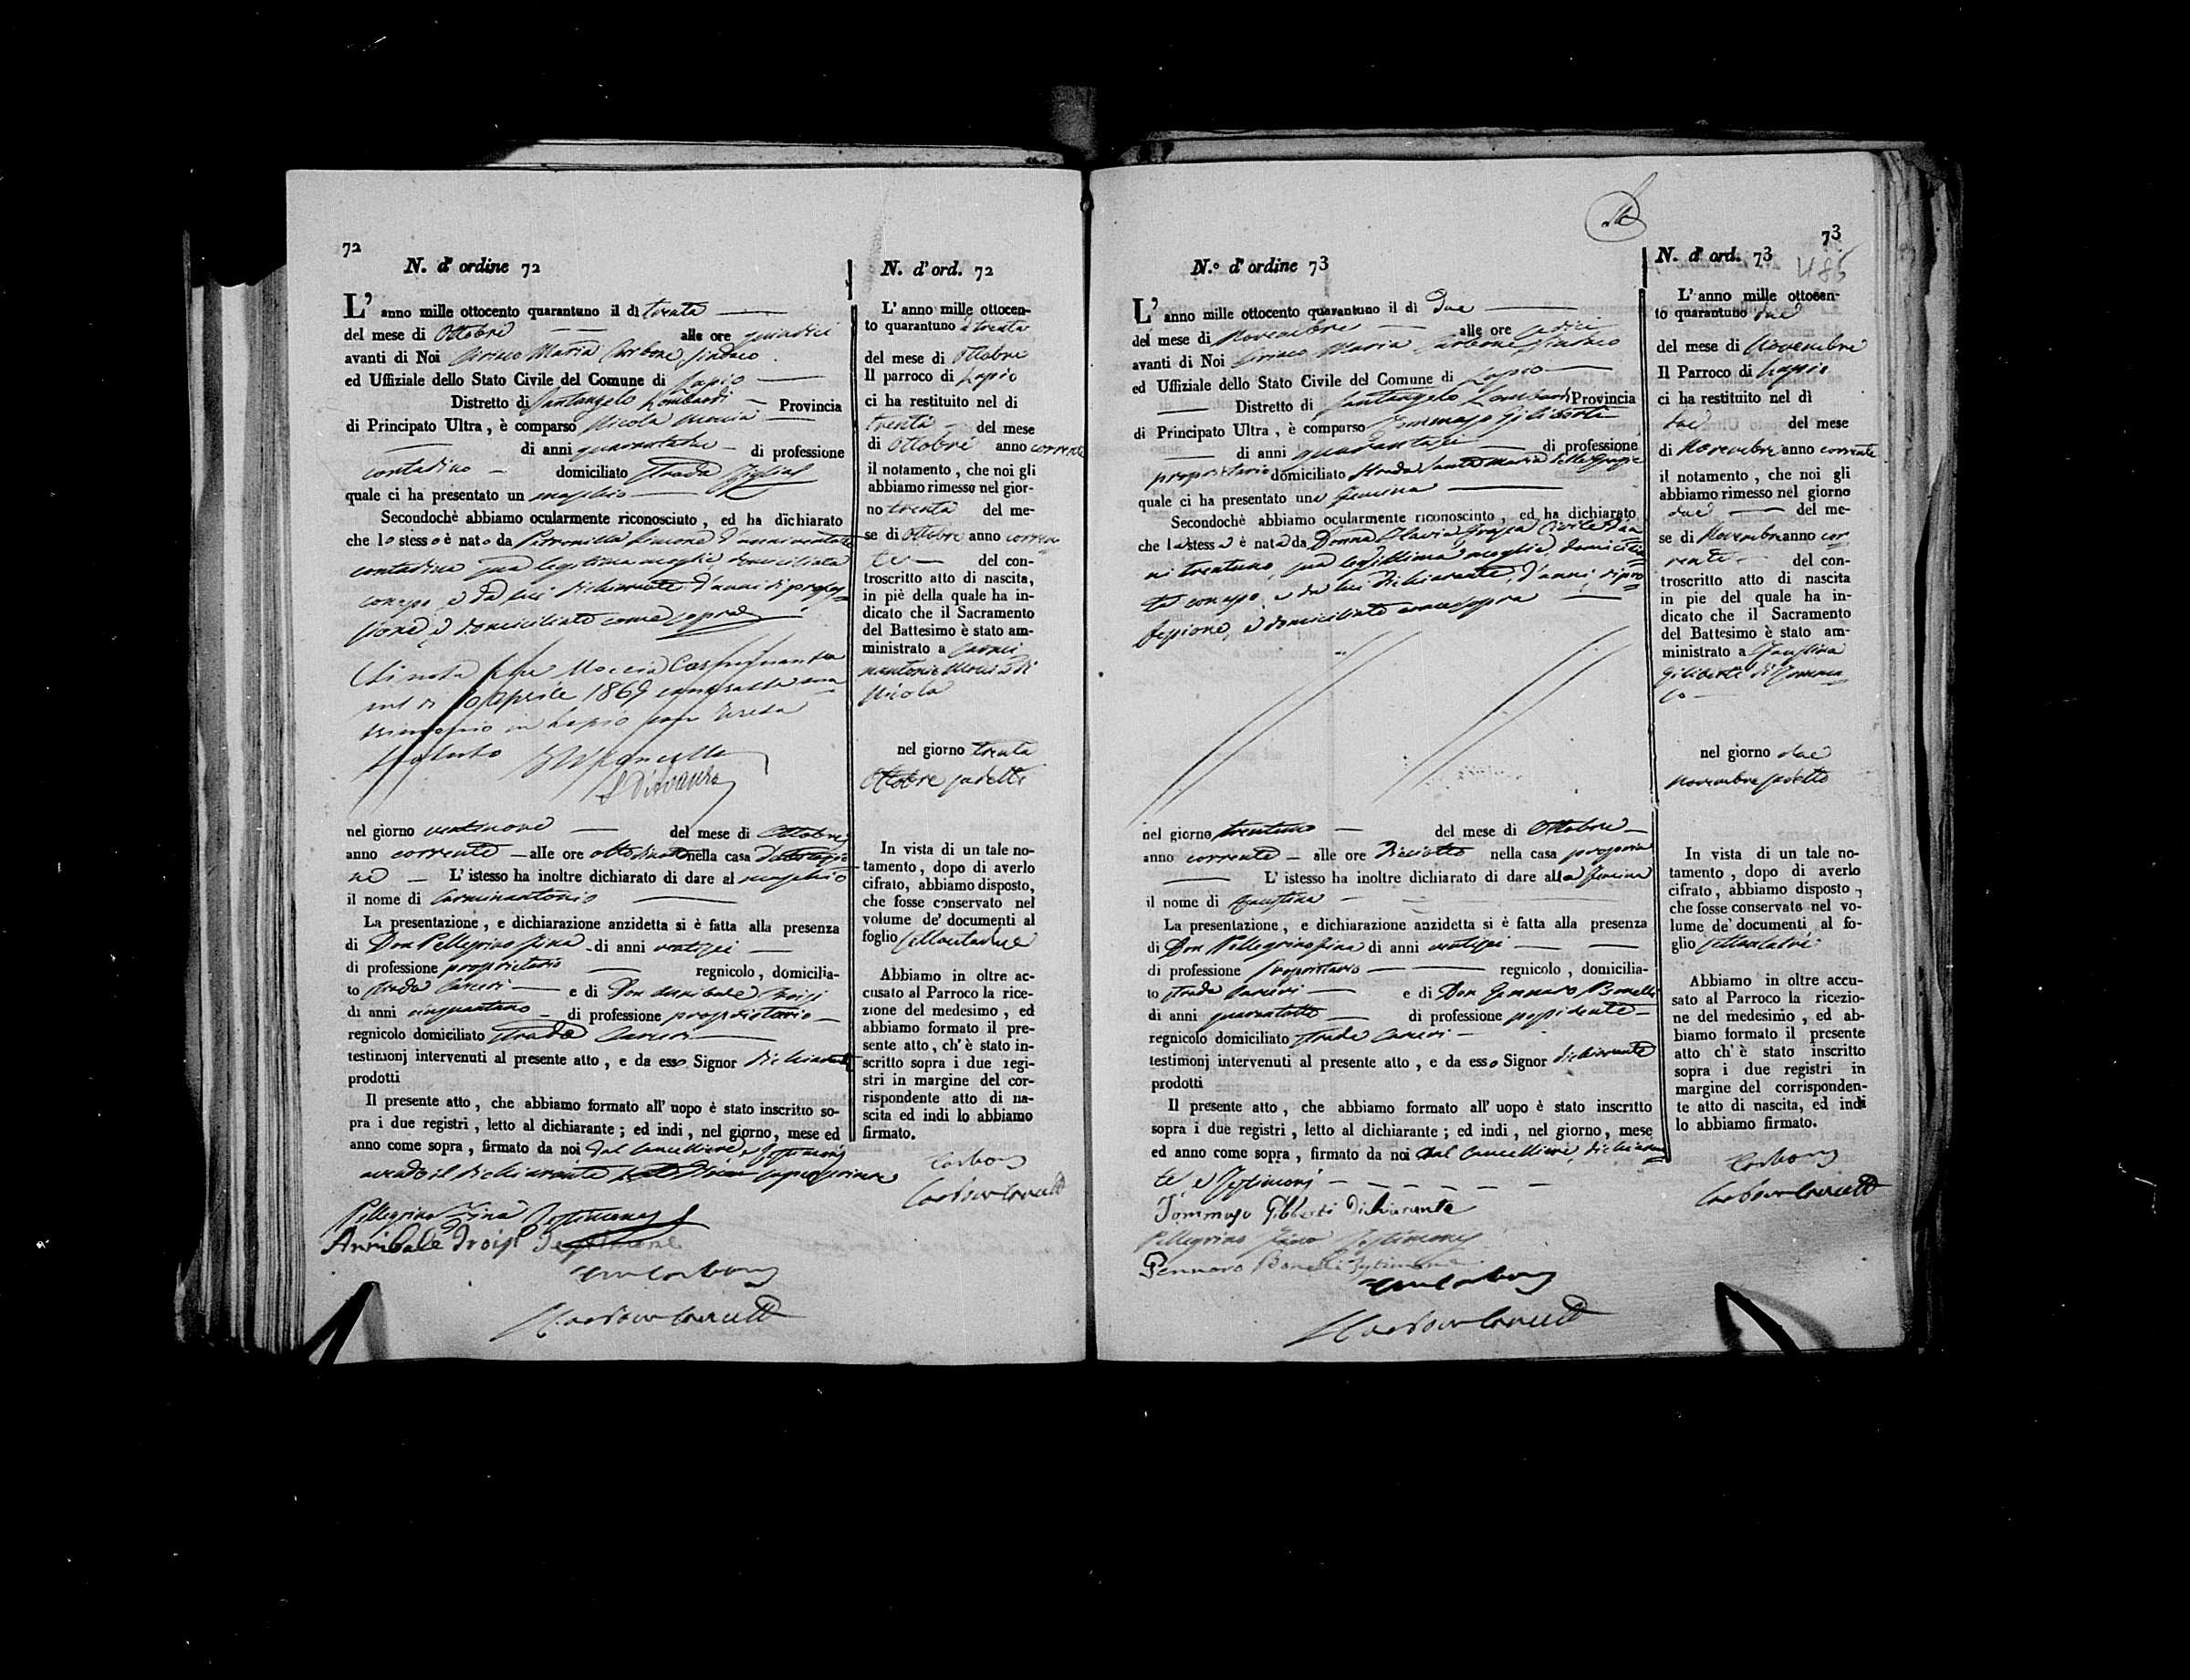 72
N. d' ordine 72
L' anno mille ottocento quarantuno il dì trenta
del mese di Ottobre alle ore quindici
avanti di Noi Ciriaco Maria Carbone Sindaco
ed Uffiziale dello Stato Civile del Comune di Lapio
Distretto di Santangelo Lombardi Provincia
di Principato Ultra, è comparso Nicola
di anni di professione
contadino domiciliato Strada
quale ci ha presentato un maschio
Secondochè abbiamo ocularmente riconosciuto, ed ha dichiarato
che lo stesso è nato da Petronilla d'anni
contadina sua legittima moglie domiciliata
con esso, e da lui dichiarante d'anni di profes=
sione, e domiciliato come sopra
Si nota che
Aprile 1869 ma
trimonio in Lapio con Teresa
nel giorno ventinove del mese di Ottobre
anno corrente alle ore nella casa
L' istesso ha inoltre dichiarato di dare al maschio
il nome di Carminantonio
La presentazione, e dichiarazione anzidetta si è fatta alla presenza
di Don Pellegrino Fina di anni ventisei
di professione proprietario regnicolo, domicilia-
to strada Carceri e di Don Annibale Troisi
di anni cinquantuno di professione proprietario
regnicolo domiciliato strada Carceri
testimonj intervenuti al presente atto, e da esso Signor dichiarante
prodotti
Il presente atto, che abbiamo formato all' uopo è stato inscritto so-
pra i due registri, letto al dichiarante; ed indi, nel giorno, mese ed
anno come sopra, firmato da noi dal Cancelliere e testimonj
avendo il dichiarante
Pellegrino Fina Testimone
Annibale Troisi Testimone
N. d' ord. 72
L' anno mille ottocen-
to quarantuno trenta
del mese di Ottobre
Il parroco di Lapio
ci ha restituito nel dì
trenta del mese
di Ottobre anno corrente
il notamento, che noi gli
abbiamo rimesso nel gior-
no trenta del me-
se di Ottobre anno corren
te del con-
troscritto atto di nascita,
in piè della quale ha in-
dicato che il Sacramento
del Battesimo è stato am-
ministrato a Carmi
nantonio di
Nicola
nel giorno trenta
Ottobre sudetto
In vista di un tale no-
tamento, dopo di averlo
cifrato, abbiamo disposto,
che fosse conservato nel
volume de' documenti al
foglio settantadue
Abbiamo in oltre ac-
cusato al Parroco la rice-
zione del medesimo, ed
abbiamo formato il pre-
sente atto, ch' è stato in-
scritto sopra i due regi-
stri in margine del cor-
rispondente atto di na-
scita ed indi lo abbiamo
firmato.
Carbone
73
485
N.º d' ordine 73
L' anno mille ottocento quarantuno il dì due
del mese di Novembre alle ore sedici
avanti di Noi Ciriaco Maria Carbone Sindaco
ed Uffiziale dello Stato Civile del Comune di Lapio
Distretto di Santangelo Lombardi Provincia
di Principato Ultra, è comparso Tommaso Giliberti
di anni quarantasei di professione
proprietario domiciliato strada Santa Maria delle Grazie
quale ci ha presentato una femina
Secondochè abbiamo ocularmente riconosciuto, ed ha dichiarato
che la stessa è nata da Donna Flavia Civile d'an
ni trentuno, sua legittima moglie, domicilia
ta con esso, e da lui dichiarante, d'anni, di pro
fessione, e domiciliato come sopra
nel giorno trentuno del mese di Ottobre
anno corrente alle ore diciotto nella casa propria
L' istesso ha inoltre dichiarato di dare alla femina
il nome di Faustina
La presentazione, e dichiarazione anzidetta si è fatta alla presenza
di Don Pellegrino Fina di anni ventisei
di professione proprietario regnicolo, domicilia-
to strada Carceri e di Don Gennaro Bonelli
di anni quarantotto di professione possidente
regnicolo domiciliato strada Carceri
testimonj intervenuti al presente atto, e da esso Signor dichiarante
prodotti
Il presente atto, che abbiamo formato all' uopo è stato inscritto
sopra i due registri, letto al dichiarante; ed indi, nel giorno, mese
ed anno come sopra, firmato da noi dal Cancelliere, dichiaran
te e testimonj
Tommaso Giliberti Dichiarante
Pellegrino Fina Testimone
Gennaro Bonelli Testimone
N. d' ord. 73
L' anno mille ottocen-
to quarantuno due
del mese di Novembre
Il Parroco di Lapio
ci ha restituito nel dì
due del mese
di Novembre anno corrente
il notamento, che noi gli
abbiamo rimesso nel giorno
due del me-
se di Novembre anno cor
rente del con-
troscritto atto di nascita
in pie del quale ha in-
dicato che il Sacramento
del Battesimo è stato am-
ministrato a Faustina
Giliberti di Tomma
so
nel giorno due
Novembre sudetto
In vista di un tale no-
tamento, dopo di averlo
cifrato, abbiamo disposto,
che fosse conservato nel vo-
lume de' documenti al fo-
glio settantatre
Abbiamo in oltre accu-
sato al Parroco la ricezio-
ne del medesimo, ed ab-
biamo formato il presente
atto ch' è stato inscritto
sopra i due registri in
margine del corrisponden-
te atto di nascita, ed indi
lo abbiamo firmato.
Carbone